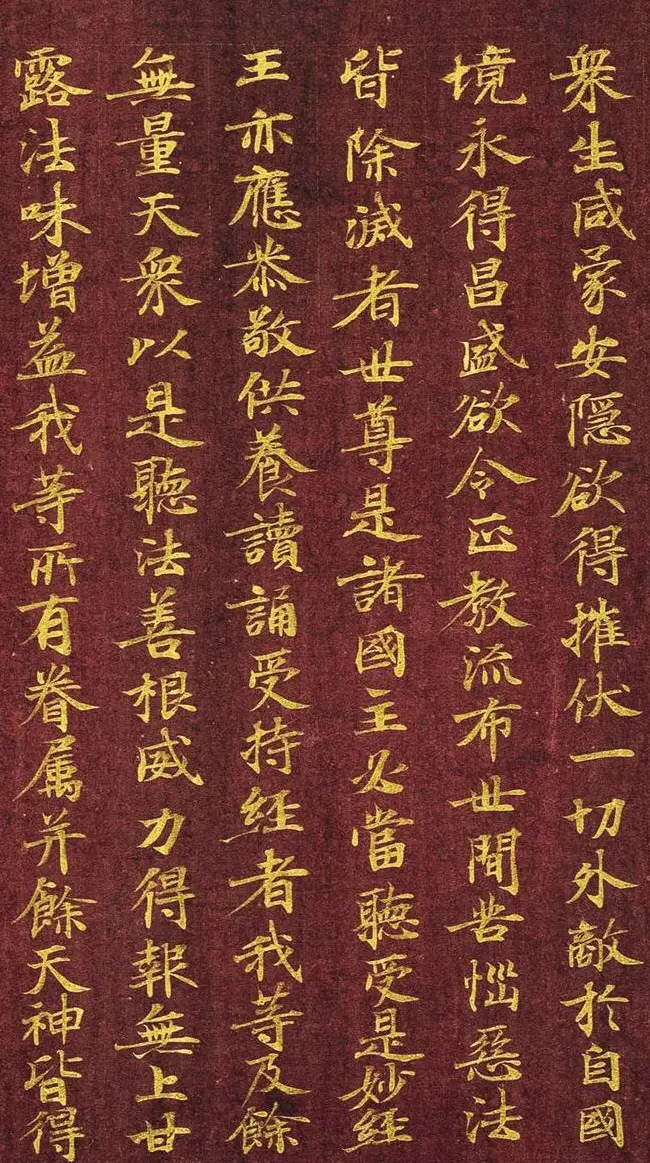 衆生咸蒙安隠欲得摧伏一切外敵於自國
境永得昌盛欲令正教流布世間苦惱惡法
皆除滅者世尊是諸國主必當聽受是妙經
王亦應恭敬供養讀誦受持經者我等及餘
無量天衆以是聽法善根威力得報無上甘
露法味增益我等所有眷属并餘天神皆得